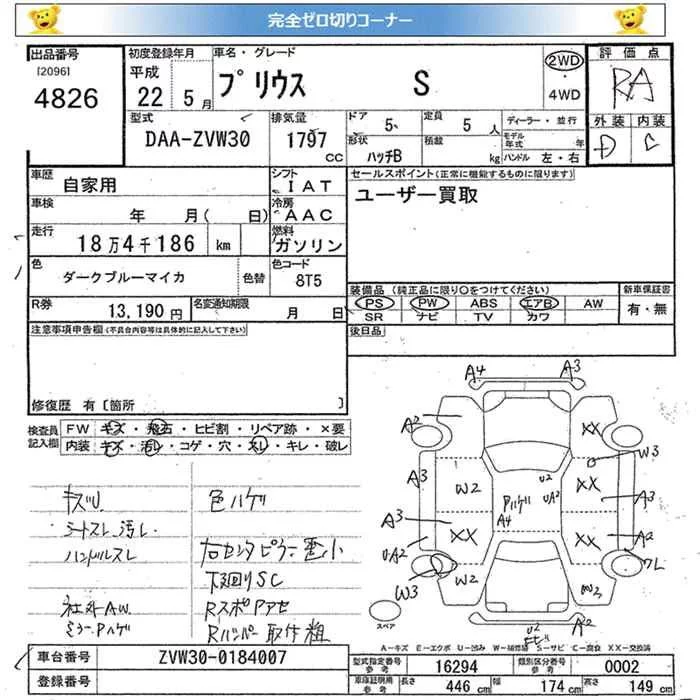 完全ゼロ切りコーナー
出品番号
[2096]
4826
初度登録年月
平成
22年 5月
車名・グレード
プリウス S
2WD
・
4WD
評価点
RA
外装 内装
D C
型式
DAA-ZVW30
排気量
1797
CC
ドア
5
形状
ハッチB
定員
5 人
積載
kg
ディーラー・並行
モデル年式 年
ハンドル 左・右
車歴
自家用
シフト
IAT
車検
年 月( 日)
冷房
AAC
走行
18万4千186 km
燃料
ガソリン
色
ダークブルーマイカ
色替
色コード
8T5
R券
13,190円
名変通知期限
月 日
セールスポイント(正常に機能するものに限ります)
ユーザー買取
装備品 (純正品に限り○をつけてください)
PS PW ABS エアB AW
SR ナビ TV カワ
新車保証書
有・無
後日品
注意事項申告欄(不具合内容等は具体的に記入して下さい)
修復歴 有 [箇所 ]
検査員記入欄
FW キズ・飛石・ヒビ割・リペア跡・×要
内装 キズ・汚レ・コゲ・穴・スレ・キレ・破レ
キズU
色ハゲ
シートスレ、汚レ
ハンドルスレ
右センタピラー歪小
下廻りSC
社外AW
RスポPアセ
ミラーPハゲ
Rバンパー取付粗
A4 A3
A2 XX
W3
A3 W2 Pハゲ U2 UA2 XX A3
A4
A3 XX XX A2
UA2
W3 W2 W3 ワレ
スペア
U2 A2
A-キズ E-エクボ U-凹み W-補修跡 S-サビ C-腐食 XX-交換済
車台番号
ZVW30-0184007
登録番号
型式指定番号
参考
16294
類別区分番号
参考
0002
車庫証明用
参考
長さ 446 cm
幅 174 cm
高さ 149 cm